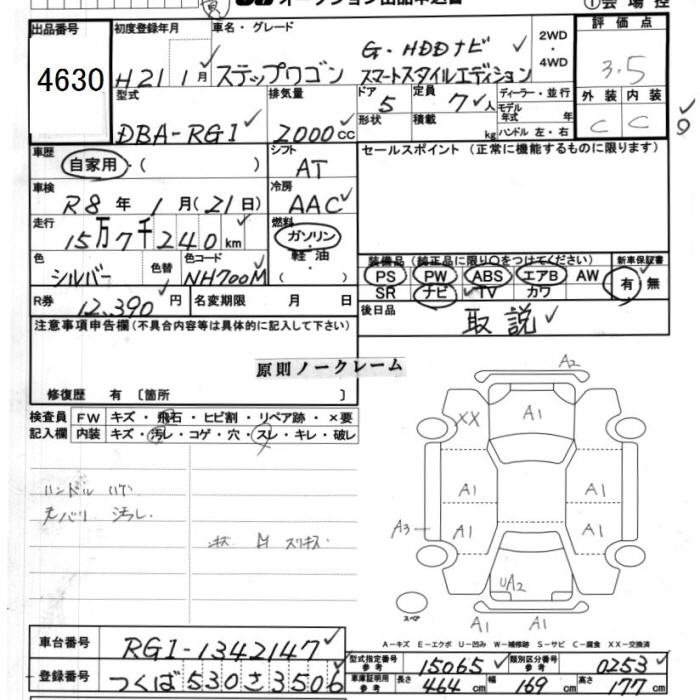 オークション出品申込書
①会場控
出品番号
4630
初度登録年月
H21 1月
車名・グレード
ステップワゴン
G・HDDナビ
スマートスタイルエディション
2WD
・
4WD
評価点
3.5
外装 内装
C C
9
型式
DBA-RG1
排気量
2000cc
ドア
5
定員
7人
形状
積載
kg
ディーラー・並行
モデル年式 年
ハンドル 左・右
車歴
自家用・( )
シフト
AT
車検
R8年 1月(21日)
冷房
AAC
走行
15万7千240km
燃料
ガソリン・
軽油・
( )
色
シルバー
色替
色コード
NH700M
R券
12,390円
名変期限 月 日
セールスポイント(正常に機能するものに限ります)
装備品(純正品に限り○をつけてください)
PS PW ABS エアB AW
SR ナビ TV カワ
新車保証書
有・無
後日品
取説
注意事項申告欄(不具合内容等は具体的に記入して下さい)
原則ノークレーム
修復歴 有〔箇所 〕
検査員
記入欄
FW キズ・飛石・ヒビ割・リペア跡・×要
内装 キズ・汚レ・コゲ・穴・スレ・キレ・破レ
ハンドル ハゲ
汚レ
スリキズ
A2
XX
A1
A1
A1
A1
A1
A3
UA2
A1
スペア
A-キズ E-エクボ U-凹み W-補修跡 S-サビ C-腐食 XX-交換済
車台番号
RG1-1342147
登録番号
つくば530さ3506
型式指定番号
参考
15065
類別区分番号
参考
0253
車庫証明用
参考
長さ 464cm 幅 169cm 高さ 177cm